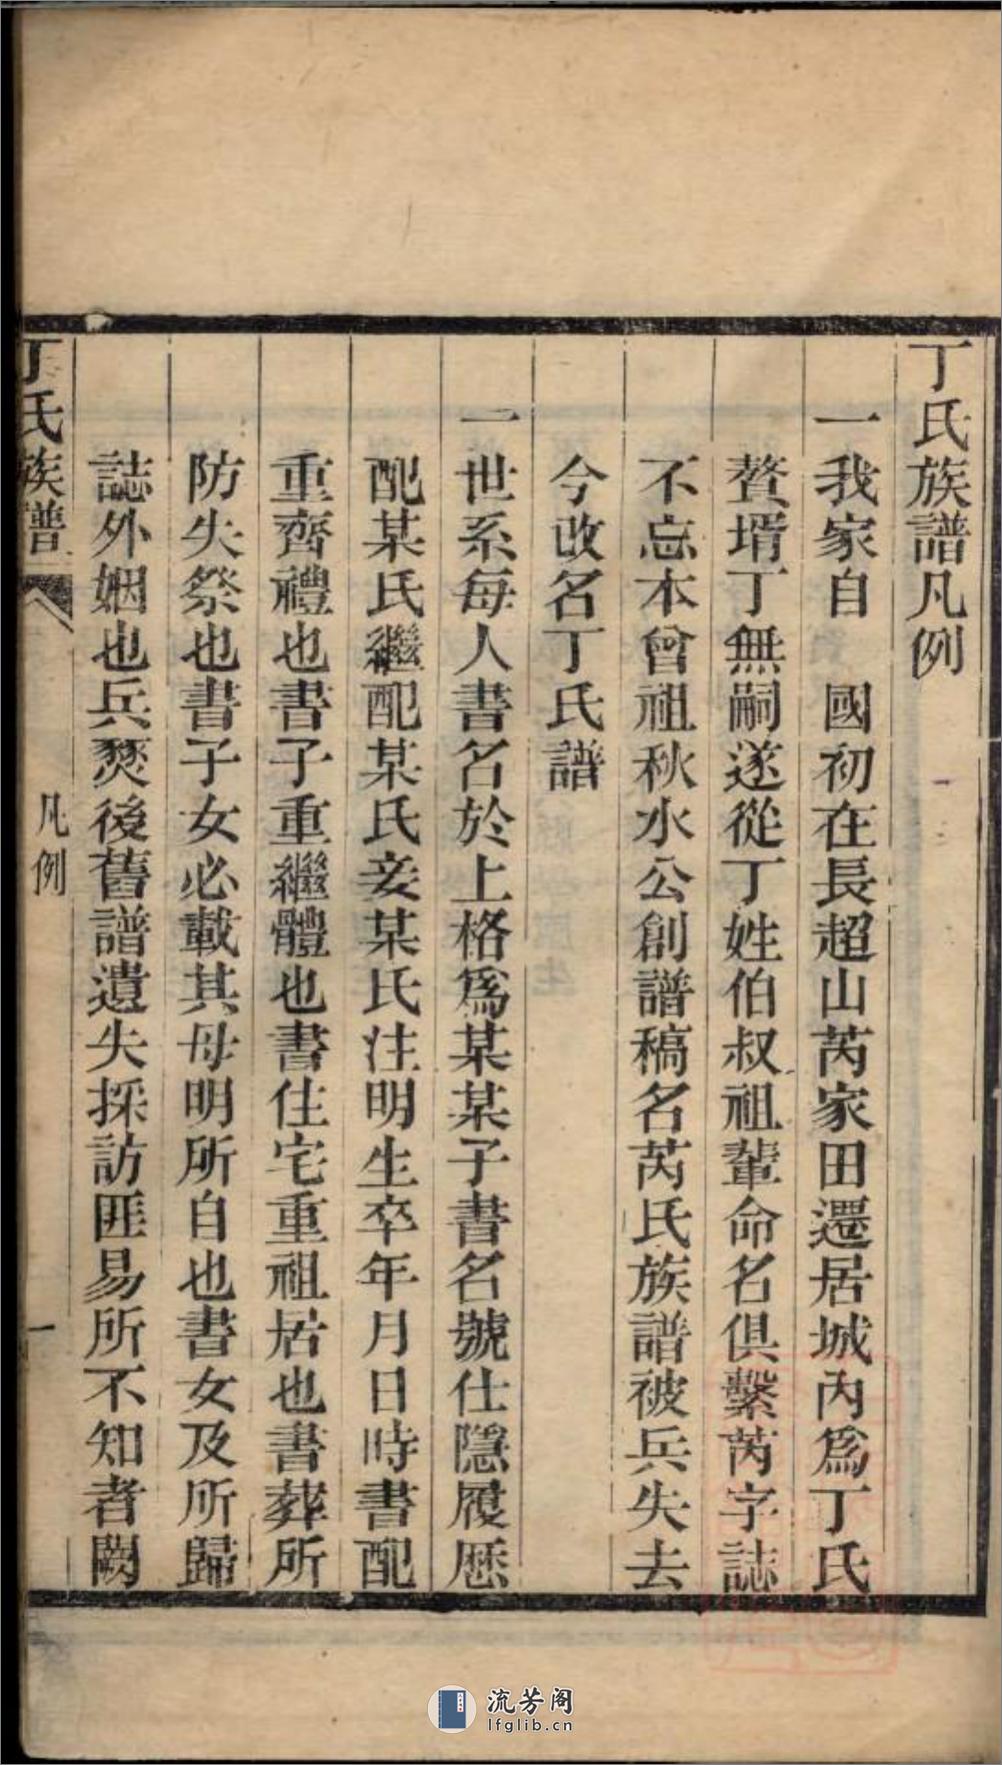 丁氏族譜凡例
一我家自　國初在長超山芮家田遷居城內爲丁氏
贅壻丁無嗣遂從丁姓伯叔祖輩命名俱繫芮字誌
不忘本曾祖秋水公創譜稿名芮氏族譜被兵失去
今改名丁氏譜
一世系每人書名於上格爲某某子書名號仕隱履歷
配某氏繼配某氏妾某氏注明生卒年月日時書配
重齊禮也書子重繼體也書住宅重祖居也書葬所
防失祭也書子女必載其母明所自也書女及所歸
誌外姻也兵燹後舊譜遺失採訪匪易所不知者闕
丁氏族譜
凡例
一
流芳阁
lfglib.cn